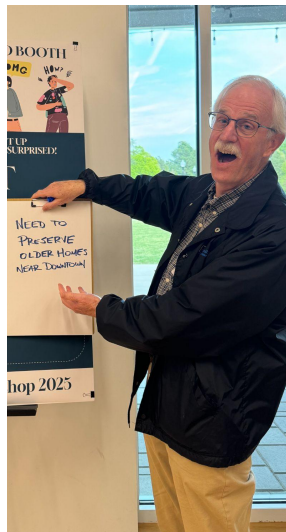 BOOTH
OMG
HOW?
T UP
SURPRISED!
NEED TO
PRESERVE
OLDER HOMES
NEAR DOWNTOWN
hop 2025